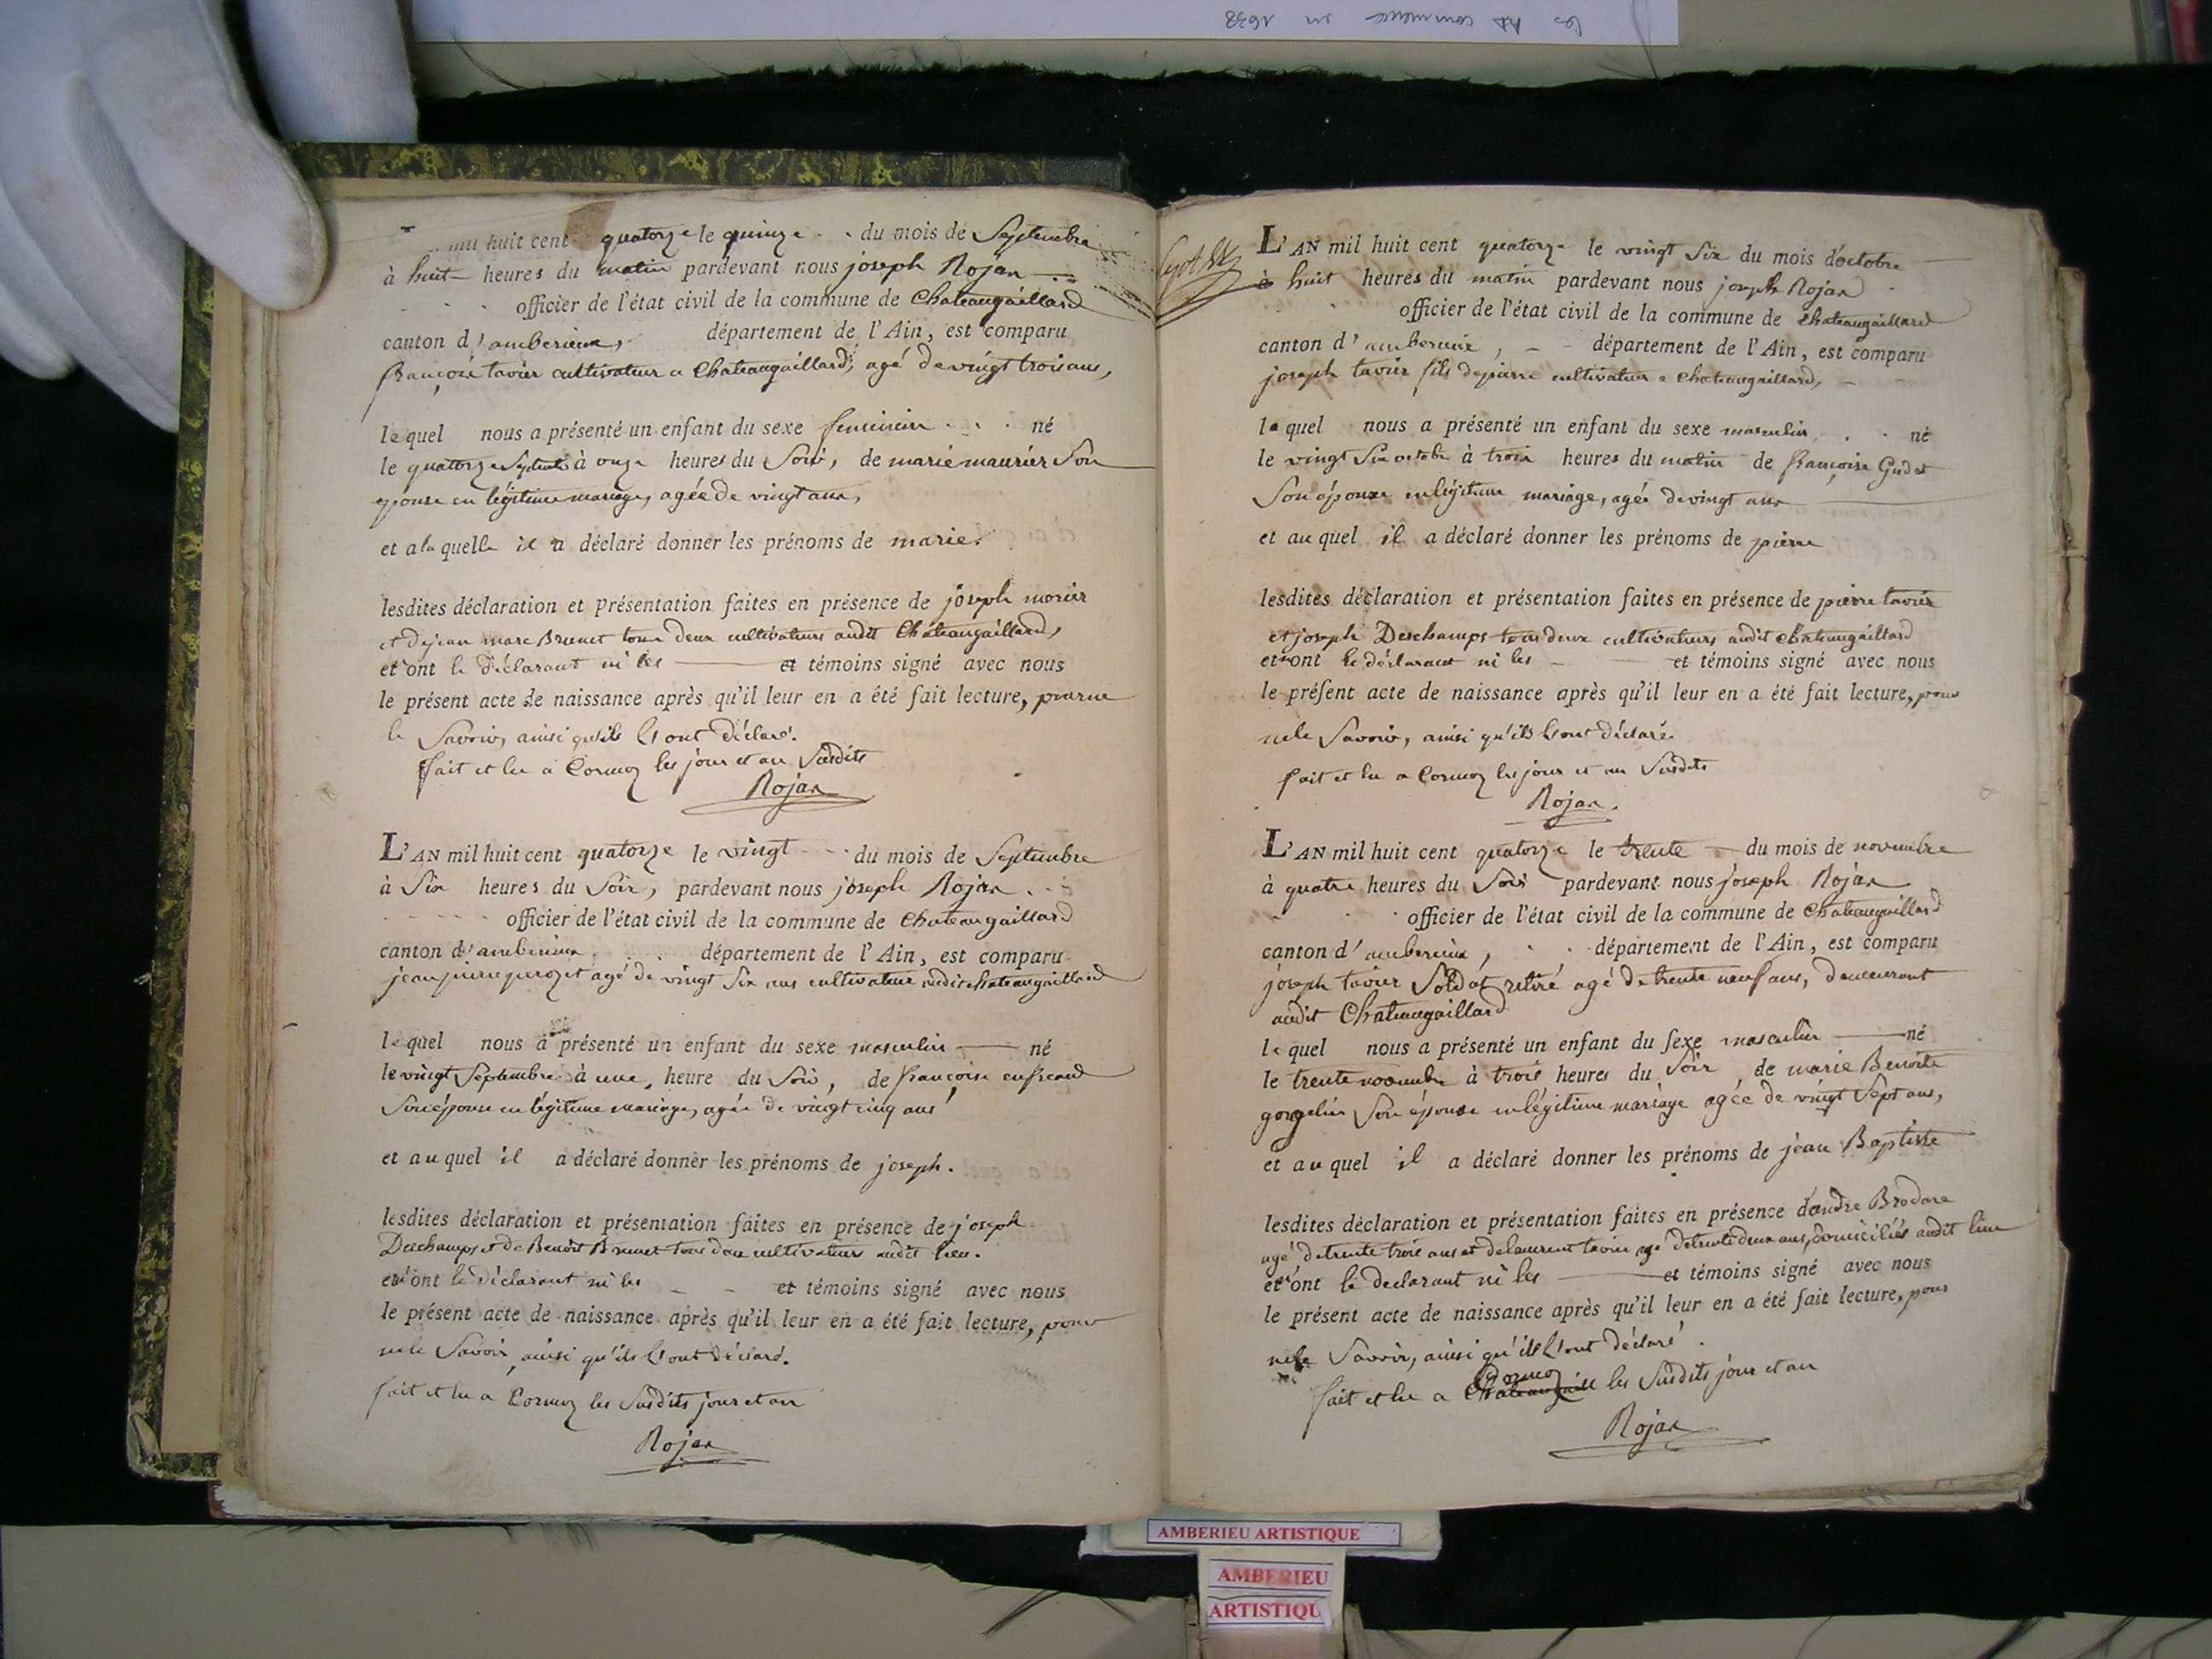 les commence en 1638
mil huit cent quatorze le quinze du mois de Septembre
à huit heures du matin pardevant nous joseph Rojan
officier de l'état civil de la commune de Chateaugaillard
canton d'amberieux, département de l'Ain, est comparu
françois tavier cultivateur a Chateaugaillard, agé de vingt trois ans,
lequel nous a présenté un enfant du sexe feminin né
le quatorze Septembre à onze heures du Soir, de marie maurier Son
epouse en légitime mariage, agée de vingt ans,
et a la quelle il a déclaré donner les prénoms de marie.
lesdites déclaration et présentation faites en présence de joseph morier
et de jean marc Brunet tous deux cultivateurs audit Chateaugaillard,
et n'ont le déclarant ni les et témoins signé avec nous
le présent acte de naissance après qu'il leur en a été fait lecture, pour ne
le Savoir, ainsi qu'ils l'ont déclaré.
fait et lu a Cormoz les jour et an Susdits
Rojan
L'AN mil huit cent quatorze le vingt du mois de Septembre
à Six heures du Soir, pardevant nous joseph Rojan
officier de l'état civil de la commune de Chateaugaillard
canton d'amberieux département de l'Ain, est comparu
jean pierre perozet agé de vingt Six ans cultivateur audit chateaugaillard
lequel nous a présenté un enfant du sexe masculin né
le vingt Septembre à une heure du Soir, de francoise
Son épouse en légitime mariage, agée de vingt cinq ans
et au quel il a déclaré donner les prénoms de joseph.
lesdites déclaration et présentation faites en présence de joseph
Deschamps et de Benoit Brunet tous deux cultivateurs audit lieu.
et n'ont le déclarant ni les et témoins signé avec nous
le présent acte de naissance après qu'il leur en a été fait lecture, pour
ne le Savoir, ainsi qu'ils l'ont déclaré.
fait et lu a Cormoz les Susdits jour et an
Rojan
L'AN mil huit cent quatorze le vingt Six du mois d'octobre
à huit heures du matin pardevant nous joseph Rojan
officier de l'état civil de la commune de chateaugaillard
canton d'amberieux, département de l'Ain, est comparu
joseph tavier fils de pierre cultivateur a chateaugaillard,
lequel nous a présenté un enfant du sexe masculin né
le vingt Six octobre à trois heures du matin de françoise Gudet
Son épouse en légitime mariage, agée de vingt ans
et au quel il a déclaré donner les prénoms de pierre
lesdites déclaration et présentation faites en présence de pierre tavier
et joseph Deschamps tous deux cultivateurs audit chateaugaillard
et n'ont le déclarant ni les et témoins signé avec nous
le présent acte de naissance après qu'il leur en a été fait lecture, pour
ne le Savoir, ainsi qu'ils l'ont déclaré.
fait et lu a Cormoz les jour et an Susdits
Rojan.
L'AN mil huit cent quatorze le trente du mois de novembre
à quatre heures du Soir pardevant nous joseph Rojan
officier de l'état civil de la commune de Chateaugaillard
canton d'amberieux, département de l'Ain, est comparu
joseph tavier Soldat retiré agé de trente neuf ans, demeurant
audit Chateaugaillard
lequel nous a présenté un enfant du sexe masculin né
le trente novembre à trois heures du Soir de marie Benoite
gorgelin Son épouse en légitime mariage agée de vingt Sept ans,
et au quel il a déclaré donner les prénoms de jean Baptiste
lesdites déclaration et présentation faites en présence d'andre Brodare
agé de trente trois ans et de laurent tavier agé de trente deux ans, domiciliés audit lieu
et n'ont le declarant ni les et témoins signé avec nous
le présent acte de naissance après qu'il leur en a été fait lecture, pour
ne le Savoir, ainsi qu'ils l'ont déclaré.
fait et lu a Cormoz les Susdits jour et an
Rojan
AMBERIEU ARTISTIQUE
AMBERIEU
ARTISTIQU